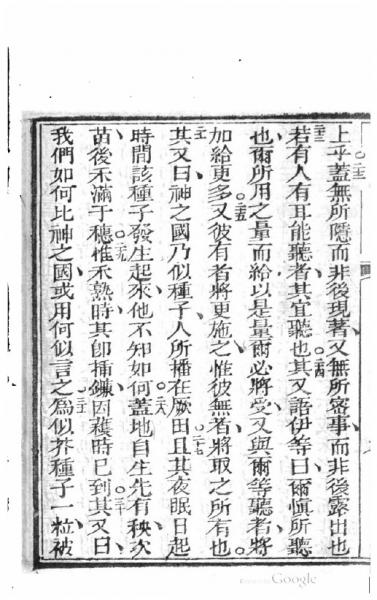 上乎蓋無所隱而非後現著又無所密事而非後露出也
若有人有耳能聽者其宜聽也其又語伊等曰爾慎所聽
也爾所用之量而給以是量爾必將受又與爾等聽者將
加給更多又彼有者將更施之惟彼無者將取之所有也
其又曰神之國乃似種子人所播在厥田且其夜眠日起
時間該種子發生起來他不知如何蓋地自生先有秧次
苗後禾滿于穗惟禾熟時其即插鐮因穫時已到其又曰
我們如何比神之國或用何似言之為似芥種子一粒被
Google